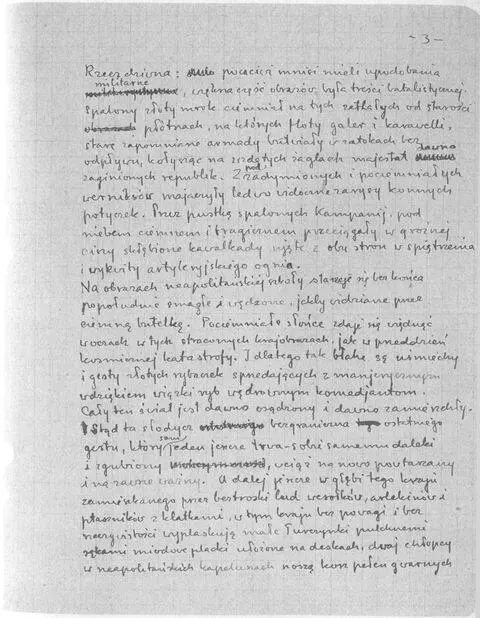 - 3 -
Rzecz dziwna: poczciwi mnisi mieli upodobania
militarne
, większa część obrazów była treści batalistycznej.
Spalony złoty mrok ciemniał na tych zetlałych od starości
płótnach, na których floty galer i karawelli,
stare zapomniane armady butwiały w zatokach bez
odpływu, kołysząc na wzdętych żaglach majestat dawno
zaginionych republik. Z pod zadymionych i pociemniałych
werniksów majaczyły ledwo widoczne zarysy konnych
potyczek. Przez pustkę spalonych Kampanij, pod
niebem ciemnem i tragicznem przeciągały w groźnej
ciszy skłębione kawalkady ujęte z obu stron w spiętrzenia
i wykwity artyleryjskiego ognia.
Na obrazach neapolitańskiej szkoły starzeje się bez końca
popołudnie smagłe i wędzone, jakby widziane przez
ciemną butelkę. Pociemniałe słońce zdaje się więdnąć
w oczach w tych straconych krajobrazach, jak w przeddzień
kosmicznej katastrofy. I dlatego tak błahe są uśmiechy
i gesty złotych rybaczek sprzedających z manierycznym
wdziękiem wiązki ryb wędrownym komedjantom.
Cały ten świat jest dawno osądzony i dawno zamierzchły.
Stąd ta słodycz bezgraniczna ostatniego
gestu, który sam jeden jeszcze trwa - sobie samemu daleki
i zgubiony , wciąż na nowo powtarzany
i na zawsze ważny. A dalej jeszcze w głębi tego kraju
zamieszkanego przez beztroski lud wesołków, arlekinów i
ptaszników z klatkami, w tym kraju bez powagi i bez
rzeczywistości wyplaskują małe Turczynki pulchnemi
rękami miodowe placki ułożone na deskach, dwaj chłopcy
w neapolitańskich kapeluszach niosą kosz pełen gwarnych